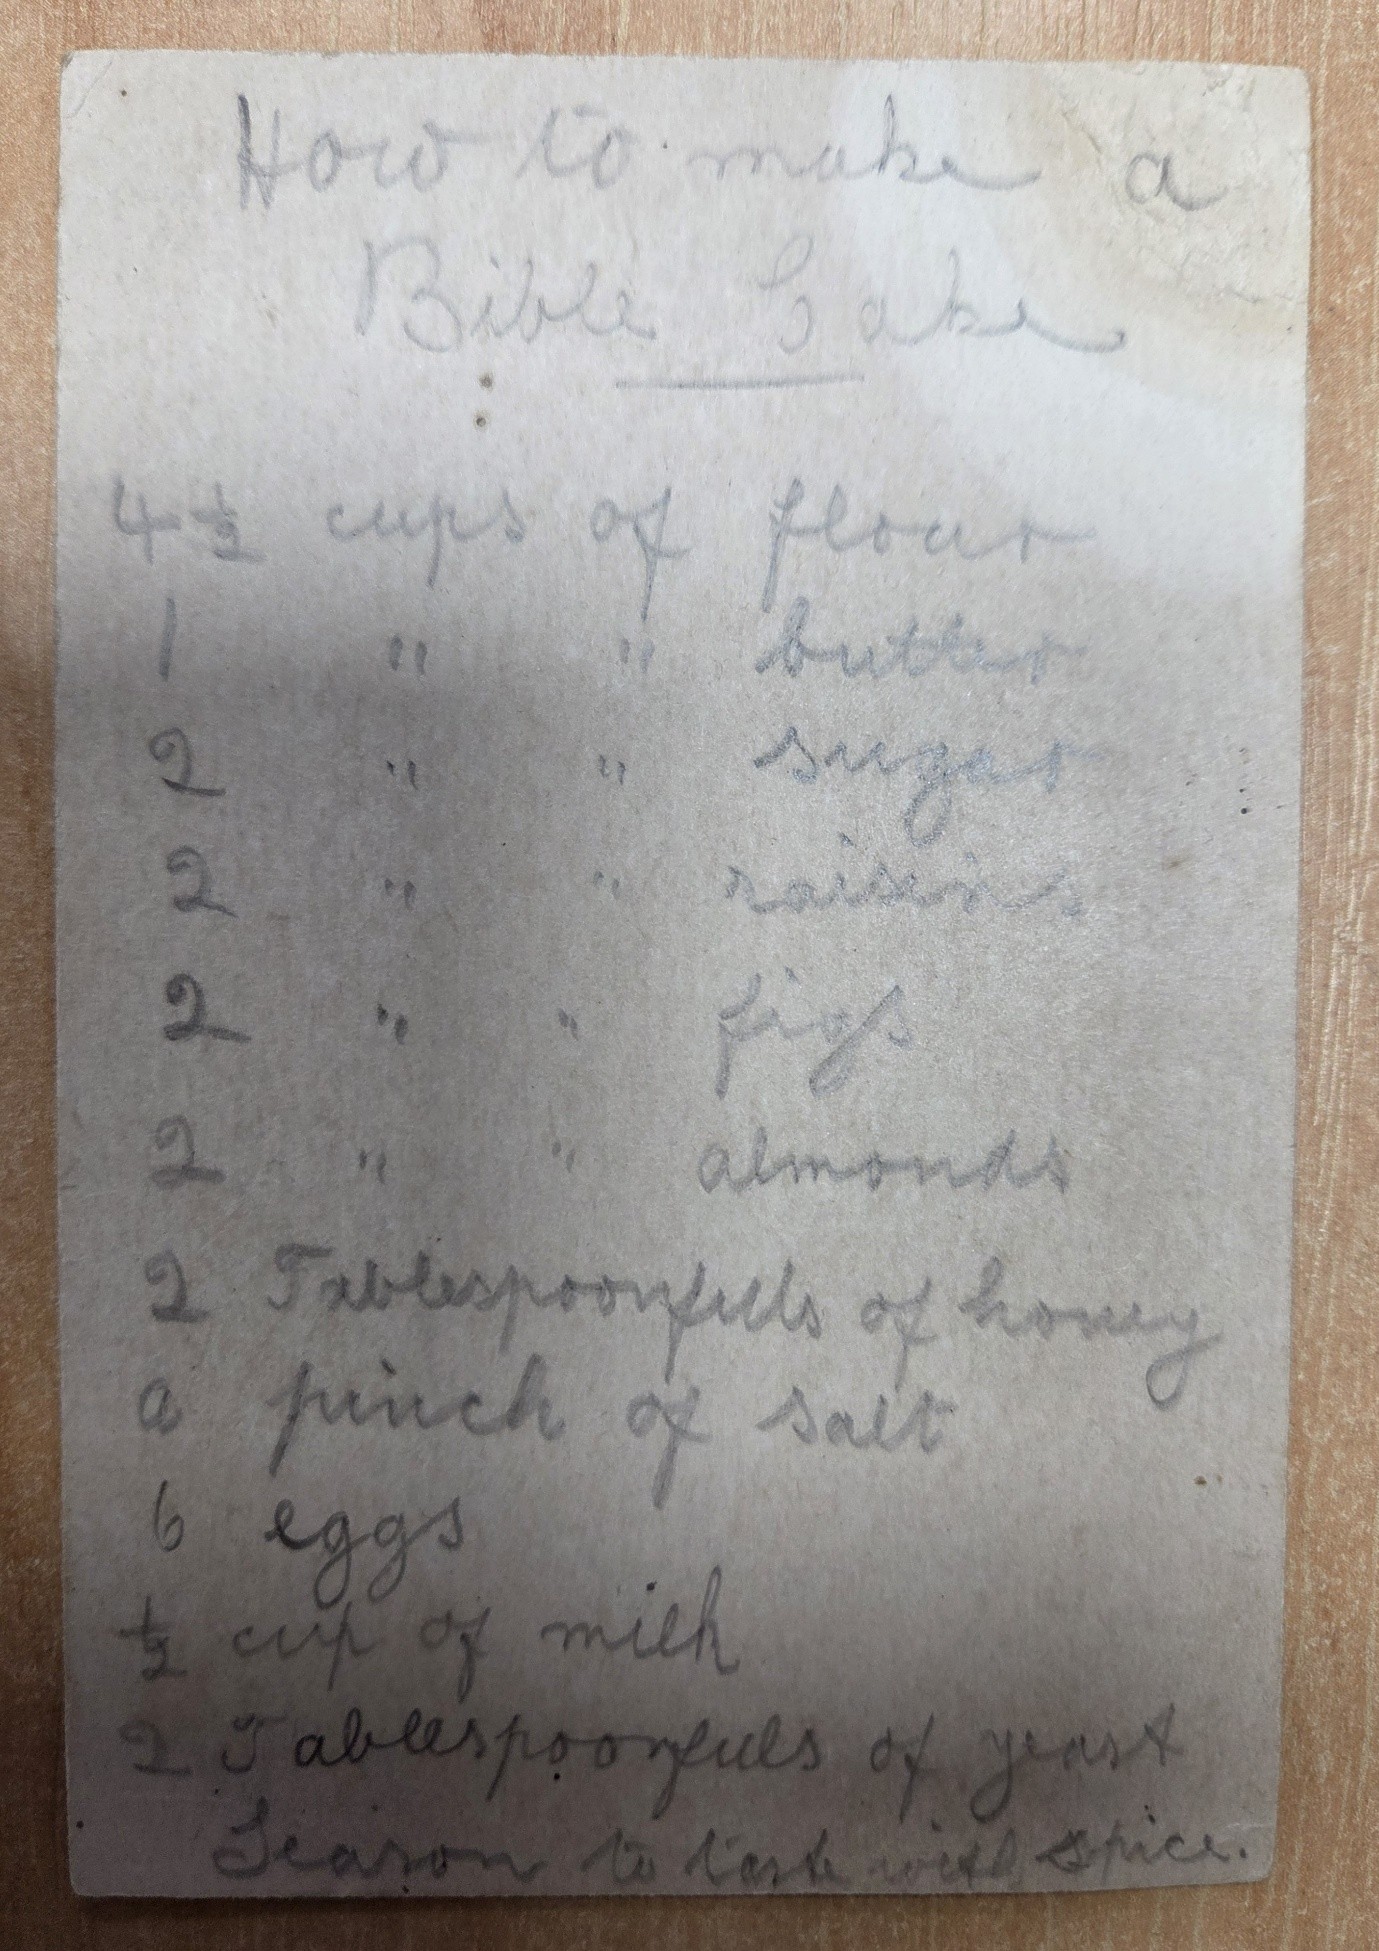 How to make a
Bible Cake
4 1/2 cups of flour
1 " " butter
2 " " sugar
2 " " raisins
2 " " figs
2 " " almonds
2 Tablespoonfulls of honey
a pinch of salt
6 eggs
1/2 cup of milk
2 Tablespoonfuls of yeast
Season to taste with spice.